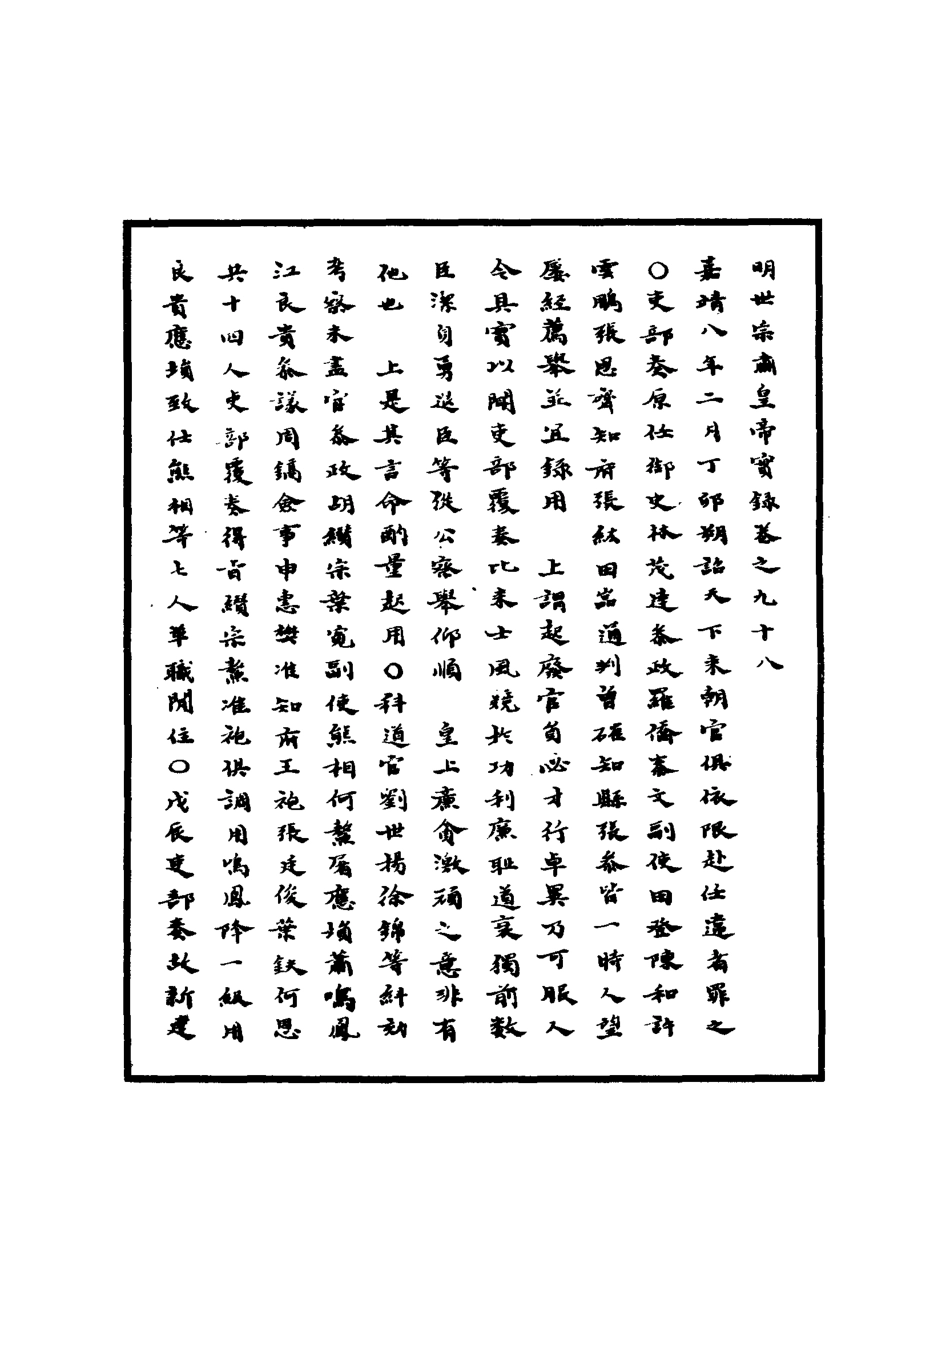 明世宗肅皇帝實錄卷之九十八
嘉靖八年二月丁卯朔詔天下來朝官俱依限赴任違者罪之
○吏部奏原任御史林茂達叅政羅僑秦文副使田登陳和許
雲鵬張思齊知府張紘田嵓通判曾確知縣張叅皆一時人望
屢經薦舉並宜錄用　上謂起廢官員必才行卓異乃可服人
令具實以聞吏部覆奏比來士風競於功利廉恥道衰獨前數
臣潔身勇退臣等從公察舉仰順　皇上廉貪激頑之意非有
他也　上是其言命酌量起用○科道官劉世揚徐錦等糾劾
考察未盡官叅政胡纘宗葉寬副使熊相何鰲屠應塤蕭鳴鳳
江良貴叅議周鎬僉事申惠樊准知府王袍張廷俊葉鈇何恩
共十四人吏部覆奏得旨纘宗鰲准袍俱調用鳴鳳降一級用
良貴應塤致仕熊相等七人革職閒住○戊辰吏部奏故新建